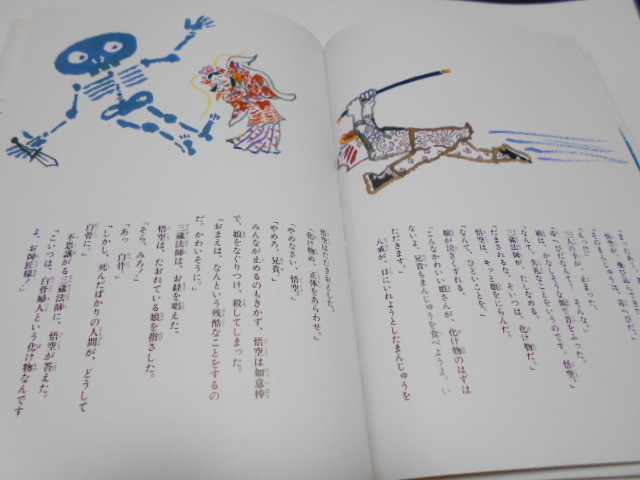 「もったいない。そんな。」
三人の手が、止まった。
毒へびだなんて……。
娘は、かなしそうな顔で首をふった。
「なんて、失礼なことをいうのです。悟空。」
三蔵法師が、たしなめる。
「だまされるな。そいつは、化け物だ。」
悟空は、キッと娘をにらんだ。
「なんて、ひどいことを。」
娘が泣きくずれる。
「こんなかわいい娘さんが、化け物のはずは
ないよ。兄貴もまんじゅうを食べようよ。い
ただきます。」
八戒が、口にいれようとしたまんじゅうを
悟空はたたきおとした。
「化け物め、正体をあらわせ。」
「やめなさい、悟空。」
「やめろ、兄貴。」
みんなが止めるのもきかず、悟空は如意棒
で、娘をなぐりつけ、殺してしまった。
「おまえは、なんという残酷なことをするの
だ。かわいそうに。」
三蔵法師は、お経を唱えた。
悟空は、たおれている娘を指さした。
「そら、みろ！」
「あっ　白骨。」
「しかし、死んだばかりの人間が、どうして
白骨に。」
不思議がる三蔵法師に、悟空が答えた。
「こいつは、白骨夫人という化け物なんです
よ、お師匠様。」